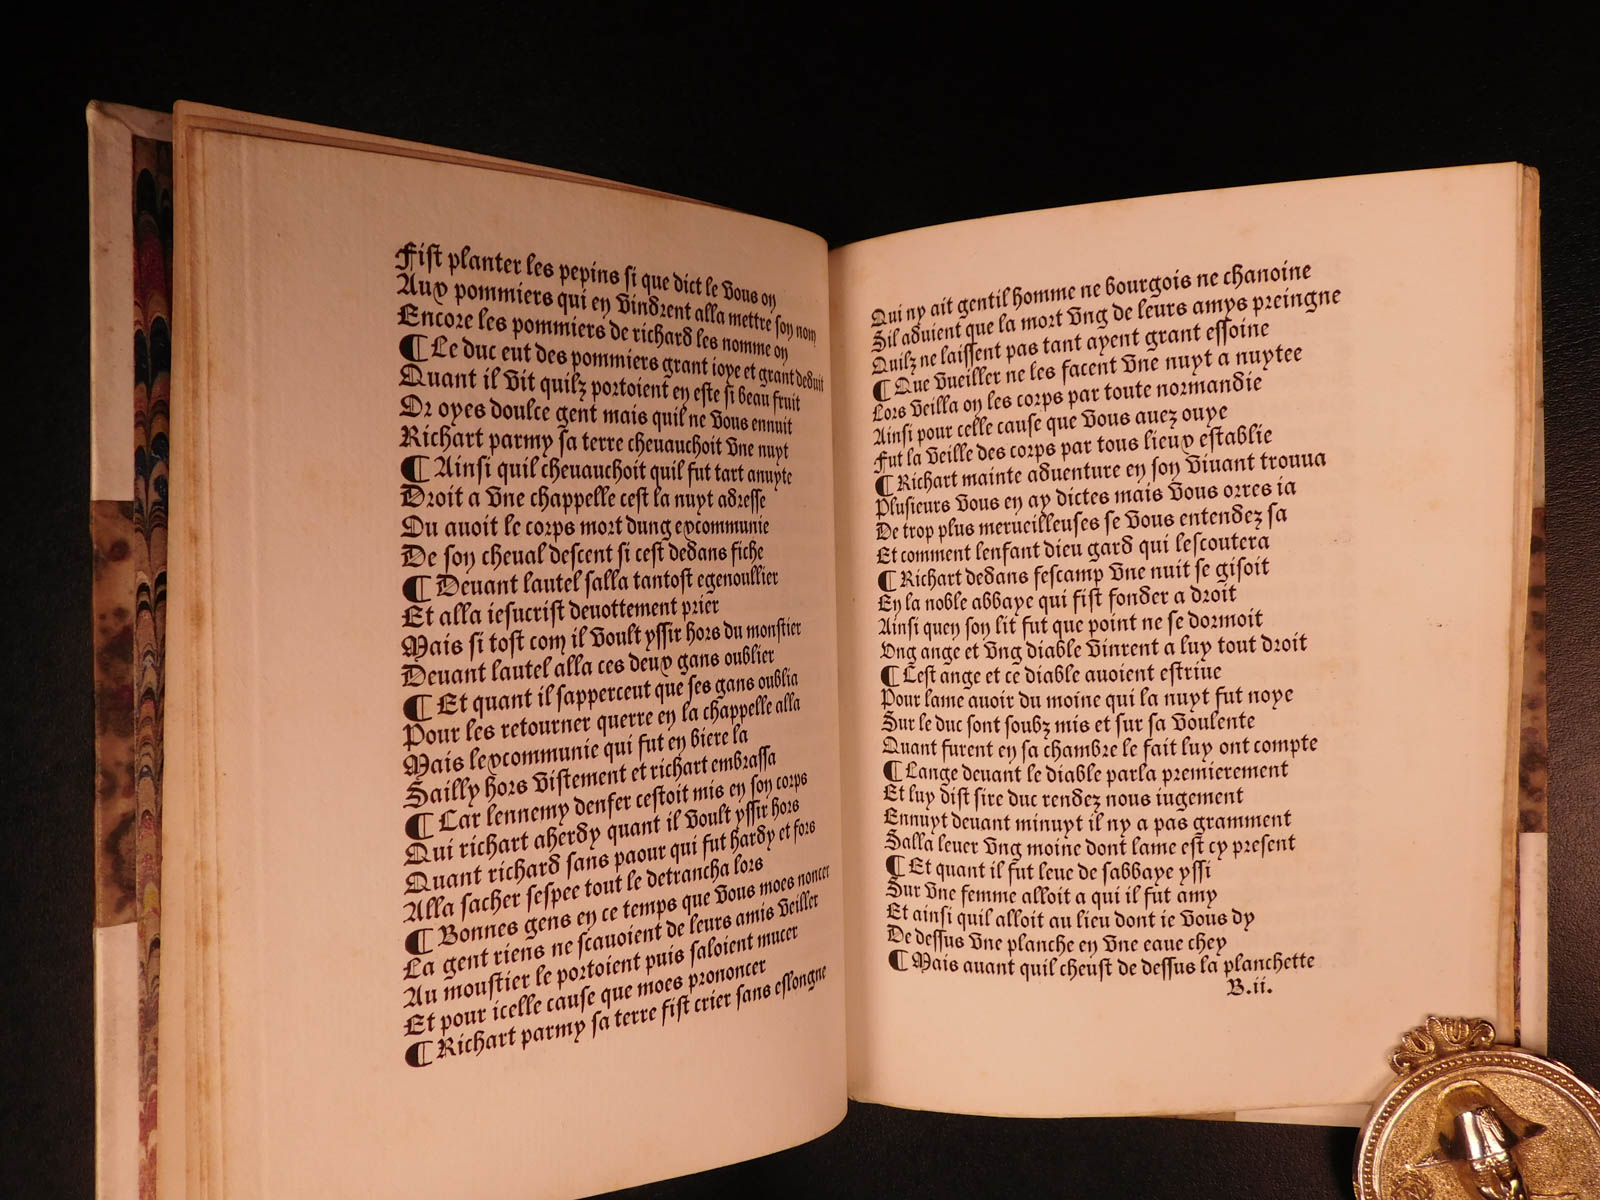 Fist planter les pepins si que dict le vous on
Aux pommiers qui en vindrent alla mettre son nom
Encore les pommiers de richard les nomme on
¶ Le duc eut des pommiers grant ioye et grant deduit
Quant il vit quilz portoient en este si beau fruit
Or oyes doulce gent mais quil ne vous ennuit
Richart parmy sa terre cheuauchoit vne nuyt
¶ Ainsi quil cheuauchoit quil fut tart anuyte
Droit a vne chappelle cest la nuyt adresse
Ou auoit le corps mort dung excommunie
De son cheual descent si cest dedans fiche
¶ Deuant lautel salla tantost egenoullier
Et alla iesucrist deuottement prier
Mais si tost com il voult yssir hors du monstier
Deuant lautel alla ces deux gans oublier
¶ Et quant il sapperceut que ses gans oublia
Pour les retourner querre en la chappelle alla
Mais lexcommunie qui fut en biere la
Sailly hors vistement et richart embrassa
¶ Car lennemy denfer cestoit mis en son corps
Qui richart aherdy quant il voult yssir hors
Quant richard sans paour qui fut hardy et fors
Alla sacher sespee tout le detrancha lors
¶ Bonnes gens en ce temps que vous moes noncer
La gent riens ne scauoient de leurs amis veiller
Au moustier le portoient puis saloient mucer
Et pour icelle cause que moes prononcer
¶ Richart parmy sa terre fist crier sans eslongne
Qui ny ait gentil homme ne bourgois ne chanoine
Sil aduient que la mort vng de leurs amys preingne
Quilz ne laissent pas tant ayent grant essoine
¶ Que vueiller ne les facent vne nuyt a nuytee
Lors veilla on les corps par toute normandie
Ainsi pour celle cause que vous auez ouye
Fut la veille des corps par tous lieux establie
¶ Richart mainte aduenture en son viuant trouua
Plusieurs vous en ay dictes mais vous orres ia
De trop plus merueilleuses se vous entendez sa
Et comment lenfant dieu gard qui lescoutera
¶ Richart dedans fescamp vne nuit se gisoit
En la noble abbaye qui fist fonder a droit
Ainsi quen son lit fut que point ne se dormoit
Vng ange et vng diable vinrent a luy tout droit
¶ Cest ange et ce diable auoient estriue
Pour lame auoir du moine qui la nuyt fut noye
Sur le duc sont soubz mis et sur sa voulente
Quant furent en sa chambre le fait luy ont compte
¶ Lange deuant le diable parla premierement
Et luy dist sire duc rendez nous iugement
Ennuyt deuant minuyt il ny a pas gramment
Salla leuer vng moine dont lame est cy present
¶ Et quant il fut leue de sabbaye yssi
Sur vne femme alloit a qui il fut amy
Et ainsi quil alloit au lieu dont ie vous dy
De dessus vne planche en vne eaue chey
¶ Mais auant quil cheust de dessus la planchette
B.ii.